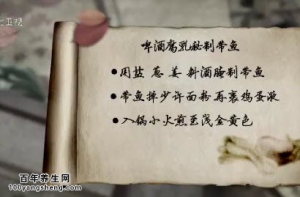 卫视
啤酒腐乳秘制带鱼
●用盐 葱 姜 料酒腌制带鱼
●带鱼拌少许面粉再裹鸡蛋液
●入锅小火煎至浅金黄色
百年养生网
100yangsheng.com